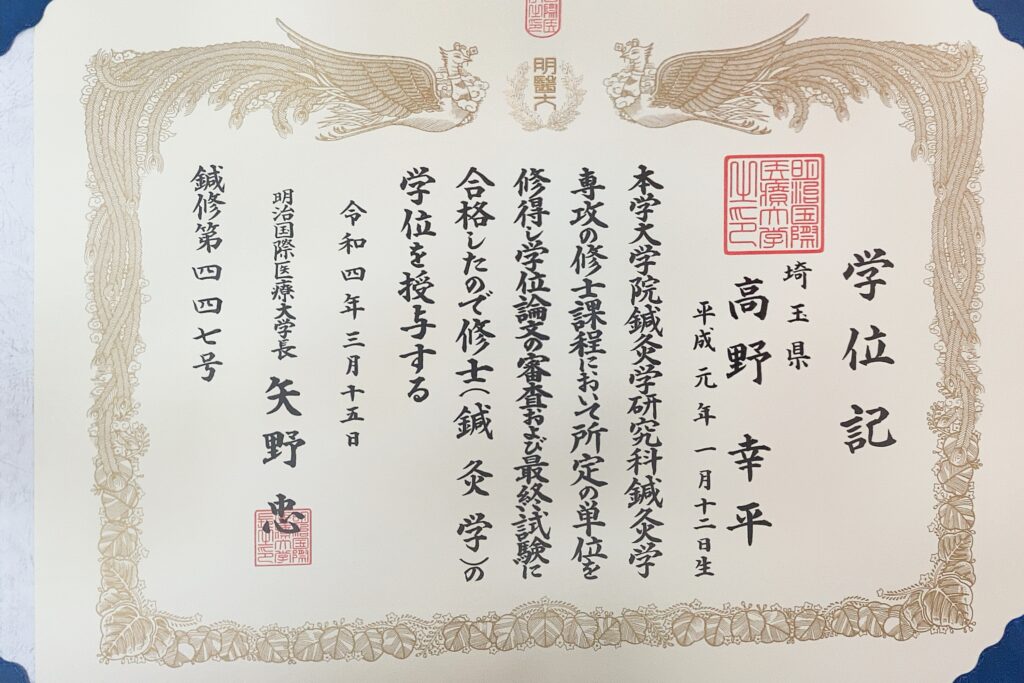 明醫大
学位記
明治国際
医療大学
之印
埼玉県
高野 幸平
平成元年一月十二日生
本学大学院鍼灸学研究科鍼灸学
専攻の修士課程において所定の単位を
修得し学位論文の審査および最終試験に
合格したので修士(鍼灸学)の
学位を授与する
令和四年三月十五日
明治国際医療大学長 矢野 忠
鍼修第四四七号